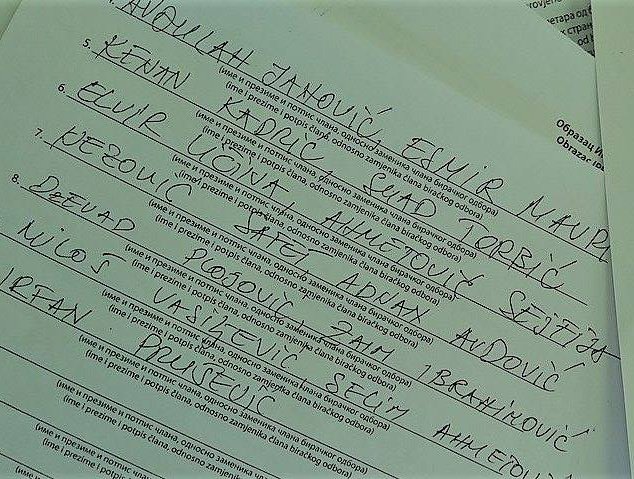 rovjeno
Образац И
Obrazac
AVDULAH JAHOVIĆ, ESMIR
(име и презиме и потпис члана, односно заменика члана бирачког одбора)
(ime i prezime i potpis člana, odnosno zamjenika člana biračkog odbora)
5. KENAN KADRIĆ SUAD TORBIĆ
(име и презиме и потпис члана, односно заменика члана бирачког одбора)
(ime i prezime i potpis člana, odnosno zamjenika člana biračkog odbora)
6. ELVIR UGINA, AHMETOVIĆ SEJFIJA
(име и презиме и потпис члана, односно заменика члана бирачког одбора)
(ime i prezime i potpis člana, odnosno zamjenika člana biračkog odbora)
7. NEZOVIĆ SAFET ADNAN AVDOVIĆ
(име и презиме и потпис члана, односно заменика члана бирачког одбора)
(ime i prezime i potpis člana, odnosno zamjenika člana biračkog odbora)
8. DŽEVAD PLOJOVIĆ, ZAIM IBRAHIMOVIĆ
(име и презиме и потпис члана, односно заменика члана бирачког одбора)
(ime i prezime i potpis člana, odnosno zamjenika člana biračkog odbora)
MILOŠ VASILJEVIĆ SELIM
(име и презиме и потпис члана, односно заменика члана бирачког одбора)
(ime i prezime i potpis člana, odnosno zamjenika člana biračkog odbora)
IRFAN PRUŠEVIĆ
(име и презиме и потпис члана, односно заменика члана бирачког одбора)
(ime i prezime i potpis člana, odnosno zamjenika člana biračkog odbora)
(име и презиме и потпис члана, односно заменика члана бирачког одбора)
(ime i prezime i potpis člana, odnosno zamjenika člana biračkog odbora)